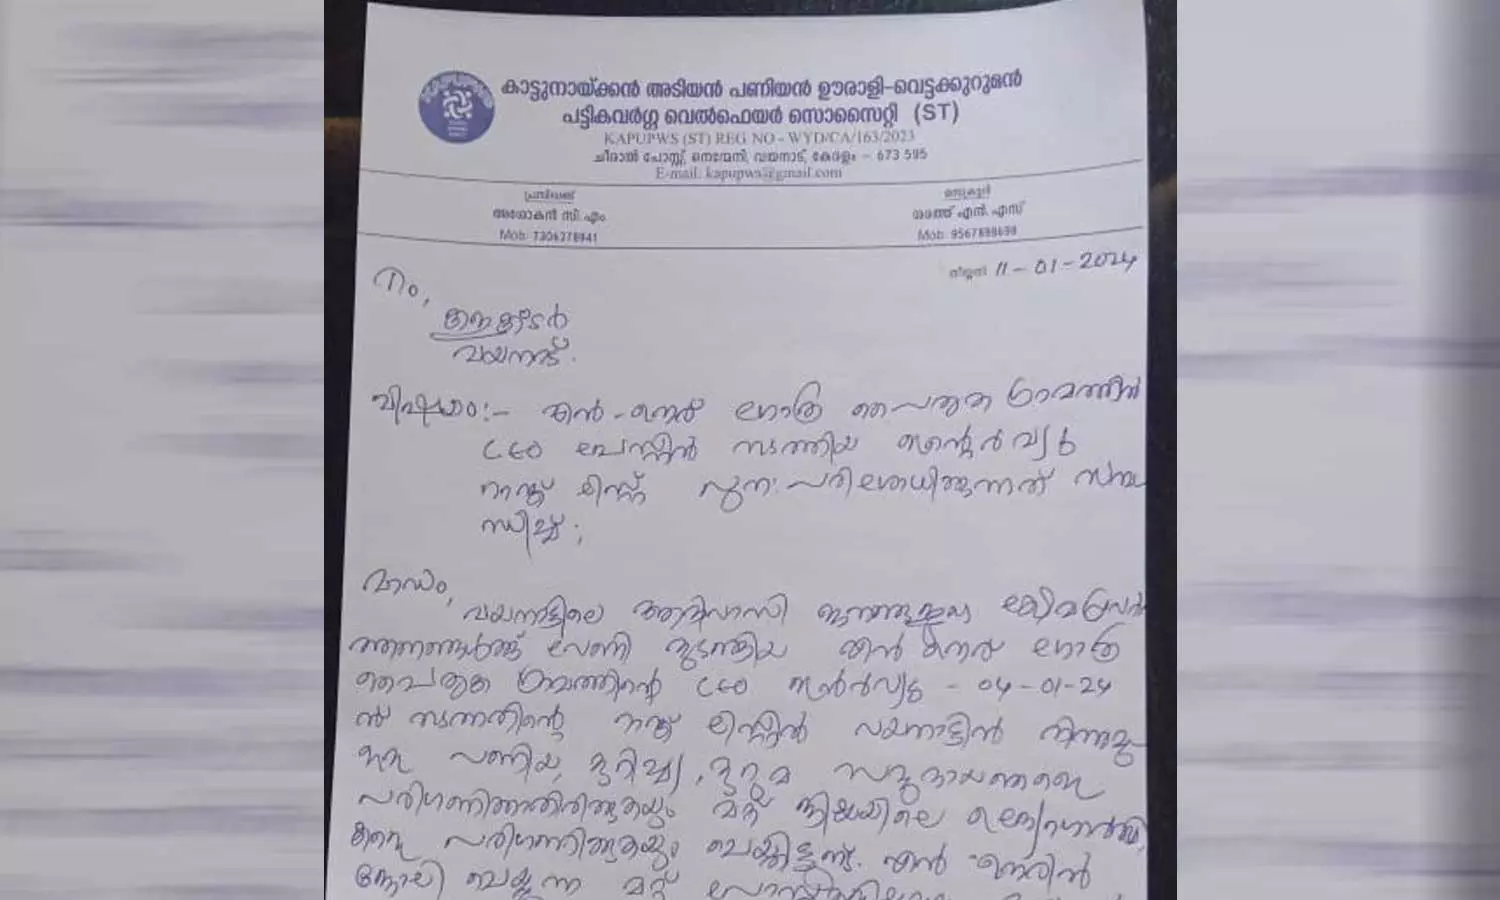 കാട്ടുനായ്ക്കൻ അടിയൻ പണിയൻ ഊരാളി-വെട്ടക്കുറുമൻ
പട്ടികവർഗ്ഗ വെൽഫെയർ സൊസൈറ്റി (ST)
KAPUPWS (ST) REG NO - WYD/CA/163/2023
ചീരാൽ പോസ്റ്റ്, നെന്മേനി, വയനാട്, കേരളം - 673 595
E-mail: kapupws@gmail.com
പ്രസിഡണ്ട്
അശോകൻ സി.എം
Mob: 7306278941
സെക്രട്ടറി
ശരത്ത് എൻ.എസ്
Mob: 9567898698
തിയ്യതി 11-01-2024
വയനാട്.
വിഷയം:- എൻ ഊര് ഗോത്ര പൈതൃക ഗ്രാമത്തിൽ
CEO പോസ്റ്റിൽ നടത്തിയ ഇന്റർവ്യൂ
റാങ്ക് ലിസ്റ്റ് പുന:പരിശോധിക്കുന്നത് സംബ
ന്ധിച്ച് ;
മാഡം,
വയനാട്ടിലെ ആദിവാസി ക്ഷേമപ്രവർ
ത്തനങ്ങൾക്ക് വേണ്ടി തുടങ്ങിയ എൻ ഊര് ഗോത്ര
പൈതൃക ഗ്രാമത്തിന്റെ CEO ഇന്റർവ്യൂ - 04-01-24
ന് നടന്നതിന്റെ റാങ്ക് ലിസ്റ്റിൽ വയനാട്ടിൽ നിന്നുമു
പണിയ, കുറിച്യ, കുറുമ സമുദായങ്ങളെ
പരിഗണിക്കാതിരിക്കുകയും മറ്റ് ജില്ലയിലെ ഉദ്യോഗാർത്ഥി
കളെ പരിഗണിക്കുകയും ചെയ്തിട്ടുണ്ട്. എൻ ഊരിൽ
ജോലി ചെയ്യുന്ന മറ്റ്